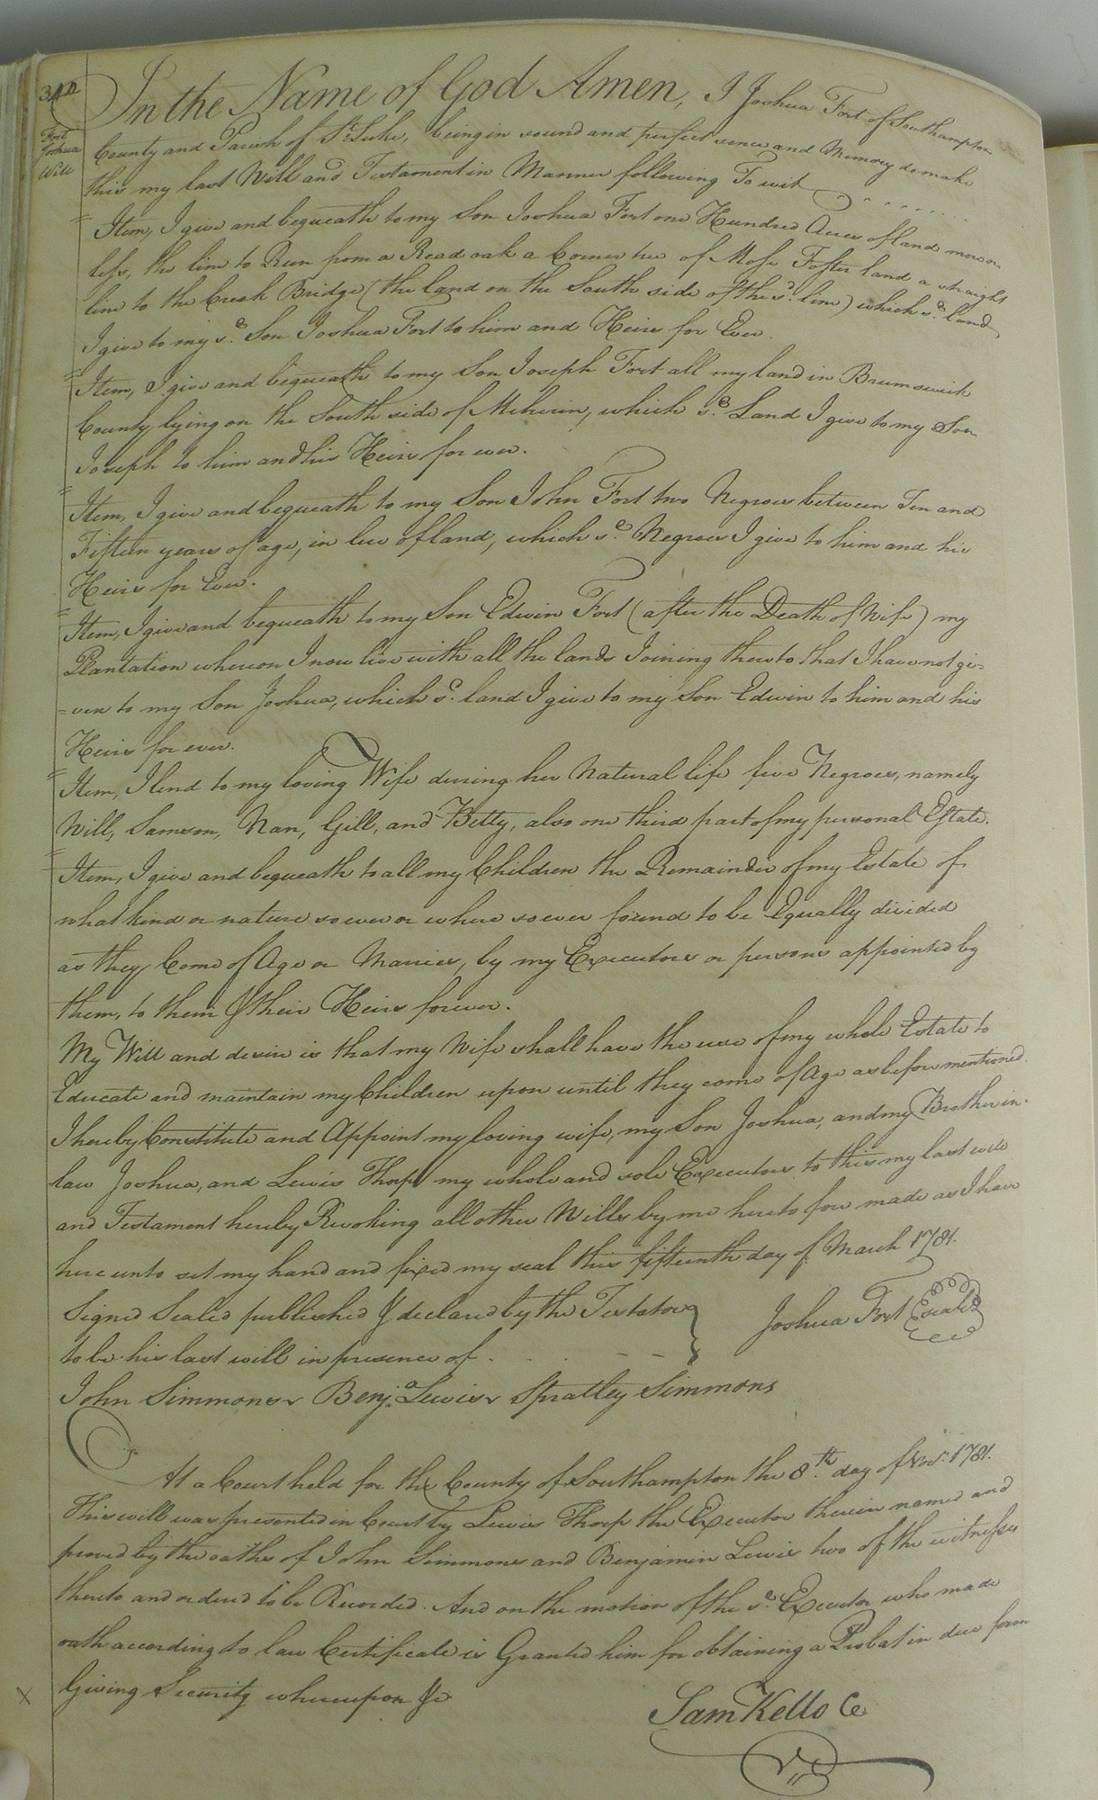 342
Fort
Joshua
Will
In the Name of God Amen, I Joshua Fort of Southampton
County and Parish of St. Luke, being in sound and perfect sence and Memory do make
this my last Will and Testament in Manner following To wit
Item, I give and bequeath to my Son Joshua Fort one Hundred Acres of land more or
less, the line to Run from a Read oak a Corner tree of Moses Foster land a straight
line to the Creek Bridge (the land on the South side of the sd. line) which sd. land
I give to my sd. Son Joshua Fort to him and Heirs for Ever.
Item, I give and bequeath to my Son Joseph Fort all my land in Brumswick
County lying on the South side of Meherin, which sd. Land I give to my Son
Joseph to him and his Heirs for ever.
Item, I give and bequeath to my Son John Fort two Negroes between Ten and
Fifteen years of age, in lieu of land, which sd. Negroes I give to him and his
Heirs for Ever.
Item, I give and bequeath to my Son Edwin Fort (after the Death of Wife) my
Plantation whereon I now live with all the lands Joining thereto that I have not gi-
=ven to my Son Joshua, which sd. land I give to my Son Edwin to him and his
Heirs for ever.
Item, I lend to my loving Wife during her Natural life five Negroes, namely
Will, Samson, Nan, Gill, and Betty, also one third part of my personal Estate.
Item, I give and bequeath to all my Children the Remainder of my Estate of
what kind or nature so ever or where so ever found to be Equally divided
as they Come of Age or Marries, by my Executors or persons appointed by
them, to them & their Heirs forever.
My Will and desire is that my Wife shall have the use of my whole Estate to
Educate and maintain my Children upon until they come of Age as before mentioned.
I hereby Constitute and Appoint my loving wife, my Son Joshua, and my Brother in
law Joshua, and Lewis Thorp my whole and sole Executors to this my last will
and Testament hereby Revoking all other Wills by me hereto fore made as I have
here unto set my hand and fixed my seal this fifteenth day of March 1781.
Signed Sealed published & declared by the Testator
to be his last will in presence of
Joshua Fort (seal)
John Simmons Benja. Lewis Spratley Simmons
At a Court held for the County of Southampton the 8th. day of Novr. 1781.
This will was presented in Court by Lewis Thorp the Executor therein named and
proved by the oaths of John Simmons and Benjamin Lewis two of the witnesses
thereto and orderd to be Recorded. And on the motion of the sd. Executor who made
oath according to law Certificate is Granted him for obtaining a Probat in due form
Giving Security whereupon &c
Sam Kello Cc
X